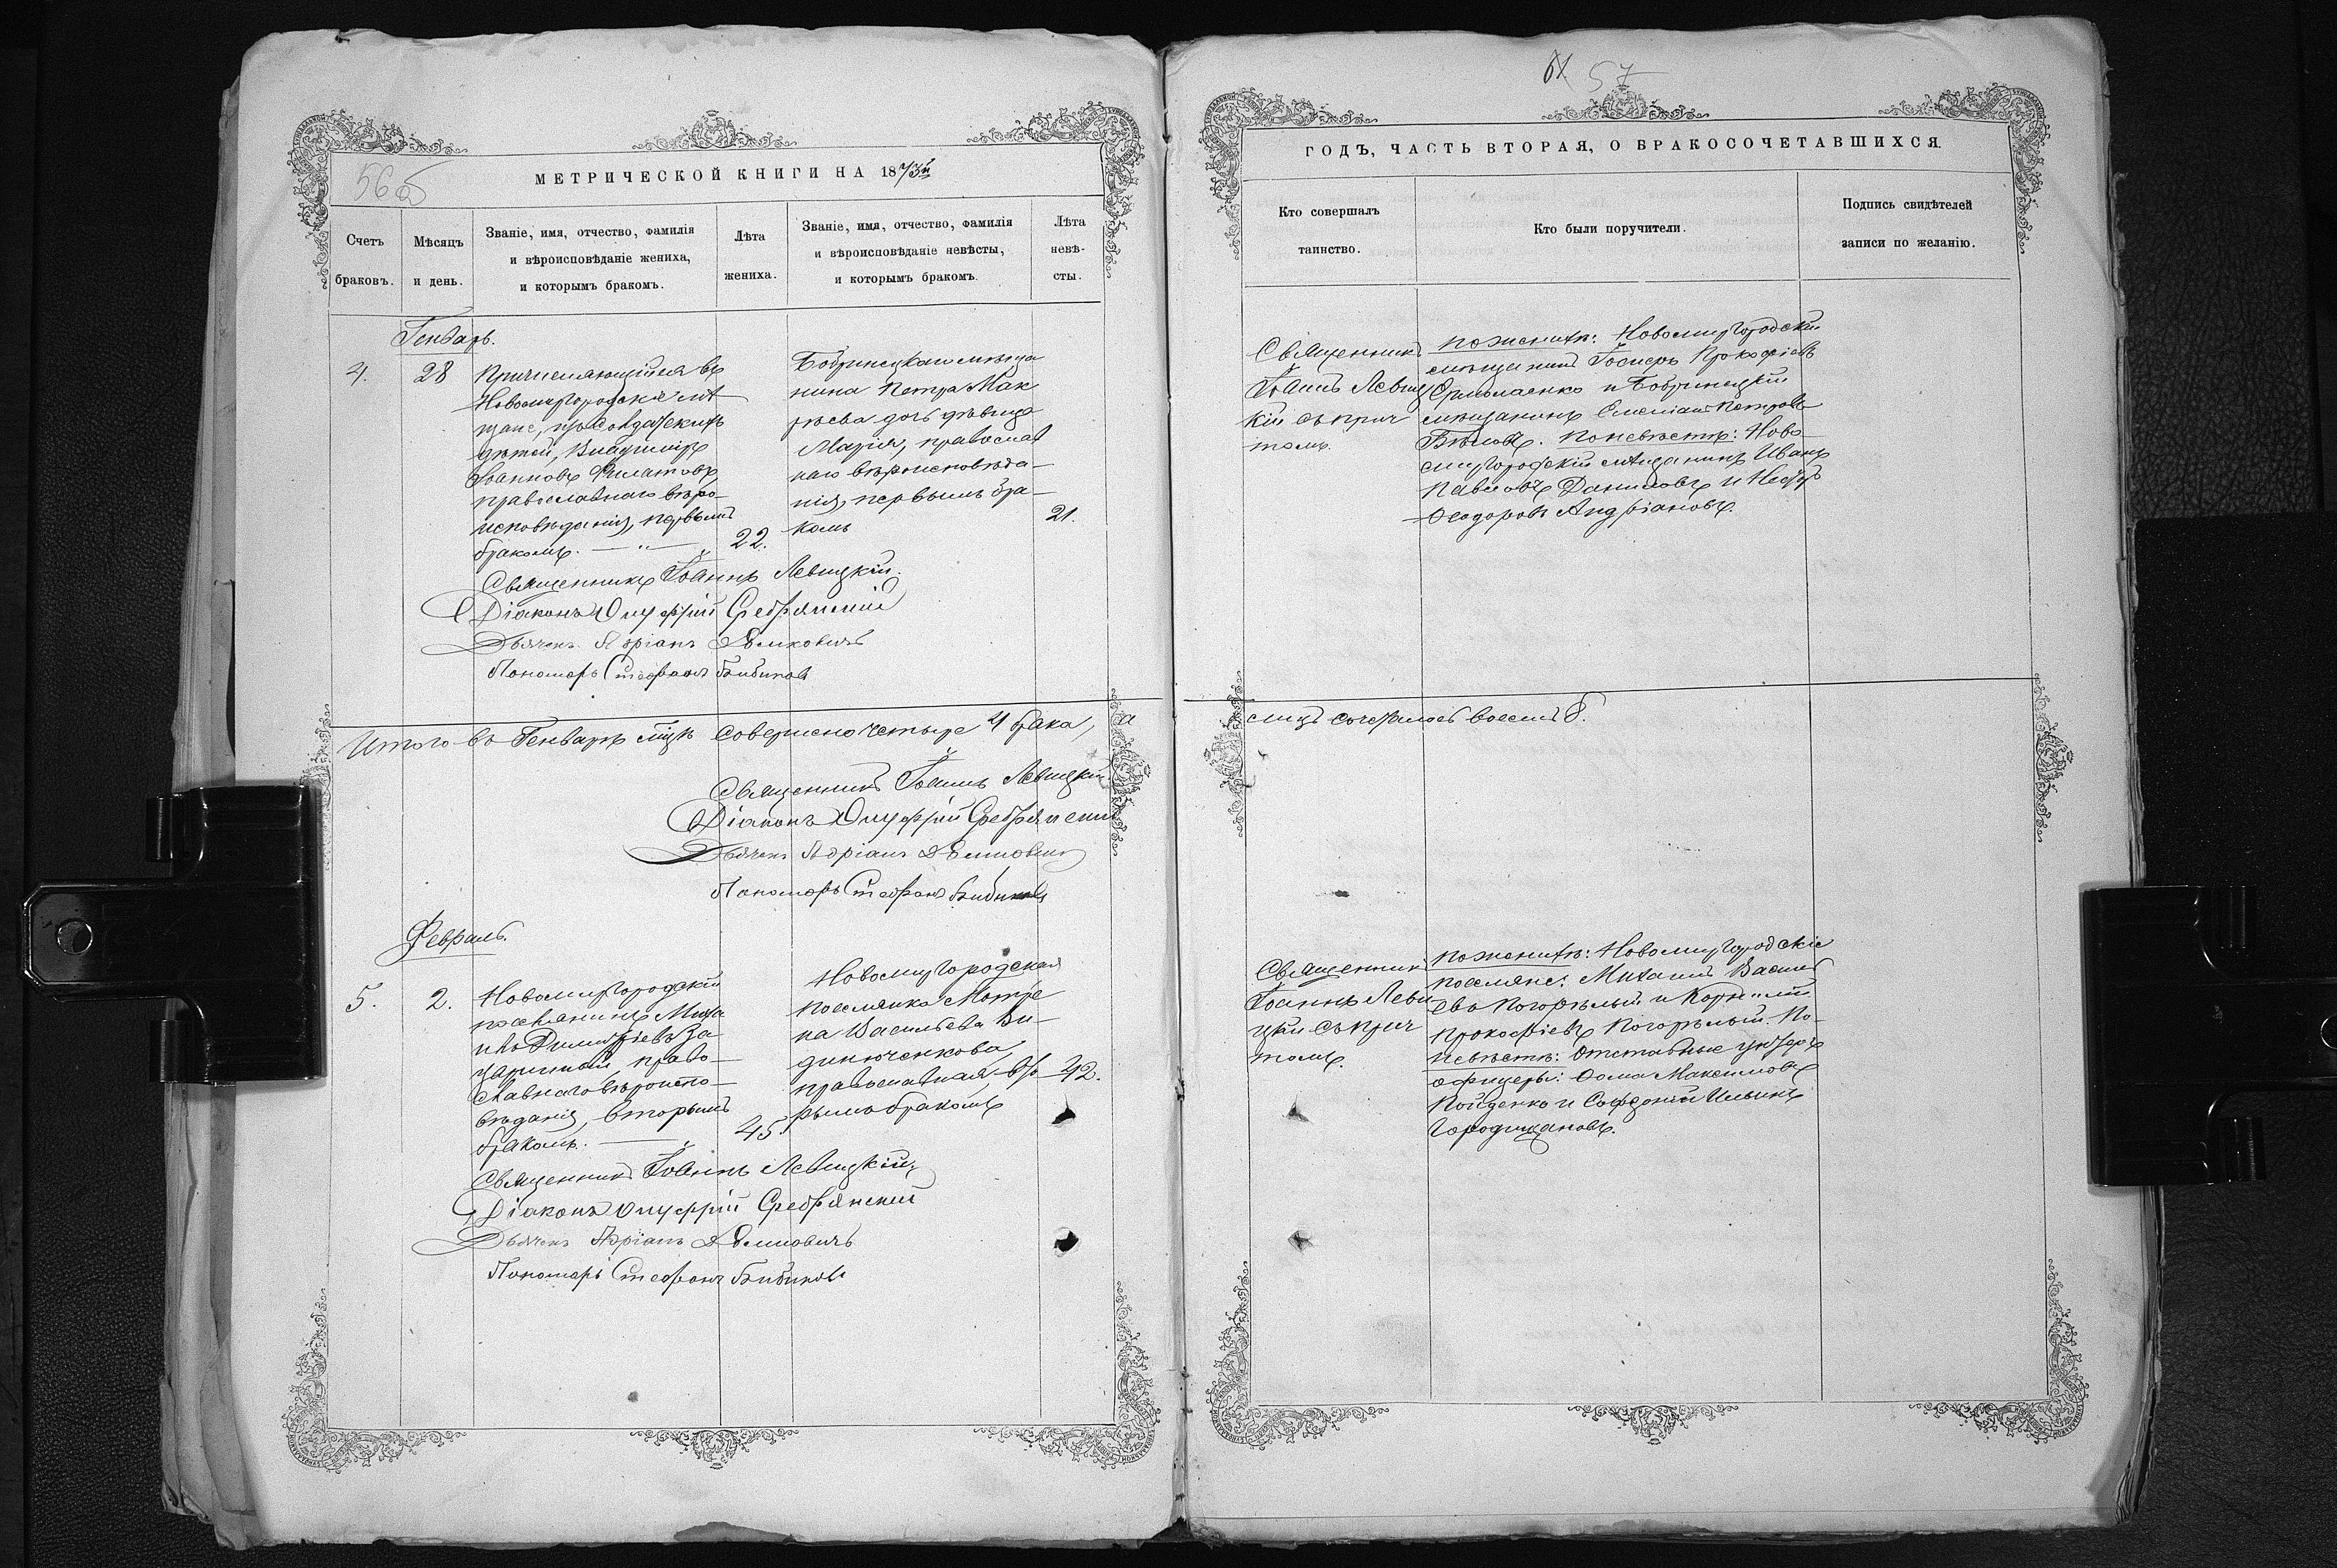 5665
МЕТРИЧЕСКОЙ КНИГИ НА 1873й
Счетъ
браковъ.
Мѣсяцъ
и день.
Званіе, имя, отчество, фамилія
и вѣроисповѣданіе жениха,
и которымъ бракомъ.
Лѣта
жениха.
Званіе, имя, отчество, фамилія
и вѣроисповѣданіе невѣсты,
и которымъ бракомъ
Лѣта
невѣ-
сты.
Генварь.
4.
28
Причисляющійся въ
Новомиргородскіе мѣ
щане, изъ солдатскихъ
дѣтей, Владиміръ
Іоанновъ Филатовъ,
православнаго вѣро-
исповѣданія, первымъ
бракомъ. — „ —
22.
Бобринецкаго мѣща
нина Петра Мак
дочь дѣвица
Марія, православ
наго вѣроисповѣда-
нія, первымъ бра-
комъ
21.
Священникъ Іоаннъ Левицкій.
Діаконъ Онуфрій Сребрянскій
Дьячекъ Адріанъ
Пономарь Стефанъ Бибиковъ
Итого въ Генварѣ мцѣ совершено четыре 4 брака, а
Священникъ Іоаннъ Левицкій.
Діаконъ Онуфрій Сребрянскій
Дьячекъ Адріанъ
Пономарь Стефанъ Бибиковъ
Февраль.
5.
2.
Новомиргородскій
поселянинъ Миха
илъ Димитріевъ За
право-
славнаго вѣроиспо-
вѣданія, вторымъ
бракомъ. —
45.
Новомиргородская
поселянка Матре
на Васильева Ви-
динюченкова,
православная, вто-
рымъ бракомъ
42.
Священникъ Іоаннъ Левицкій.
Діаконъ Онуфрій Сребрянскій
Дьячекъ Адріанъ
Пономарь Стефанъ Бибиковъ
57
ГОДЪ, ЧАСТЬ ВТОРАЯ, О БРАКОСОЧЕТАВШИХСЯ.
Кто совершалъ
таинство.
Кто были поручители.
Подпись свидѣтелей
записи по желанію.
Священникъ
Іоаннъ Левиц
кій съ прич
томъ.
По женихѣ: Новомиргородскій
мѣщанинъ Іосифъ Прокофіевъ
Ермолаенко и Бобринецкій
мѣщанинъ Емеліанъ Петровъ
Бѣловъ. По невѣстѣ: Ново-
миргородскій мѣщанинъ Иванъ
Павловъ Даниловъ и
Ѳеодоровъ Андріановъ.
лицъ сочеталось восемь 8.
Священникъ
Іоаннъ Леви
цкій съ прич
томъ.
По женихѣ: Новомиргородскіе
поселяне: Михаилъ Василь
евъ Погорѣлый и Корнилій
Прокофіевъ Погорѣлый. По
невѣстѣ: Отставные унтеръ
офицеры: Ѳома Максимовъ
Койденко и Софроній Ильинъ
Городжановъ.